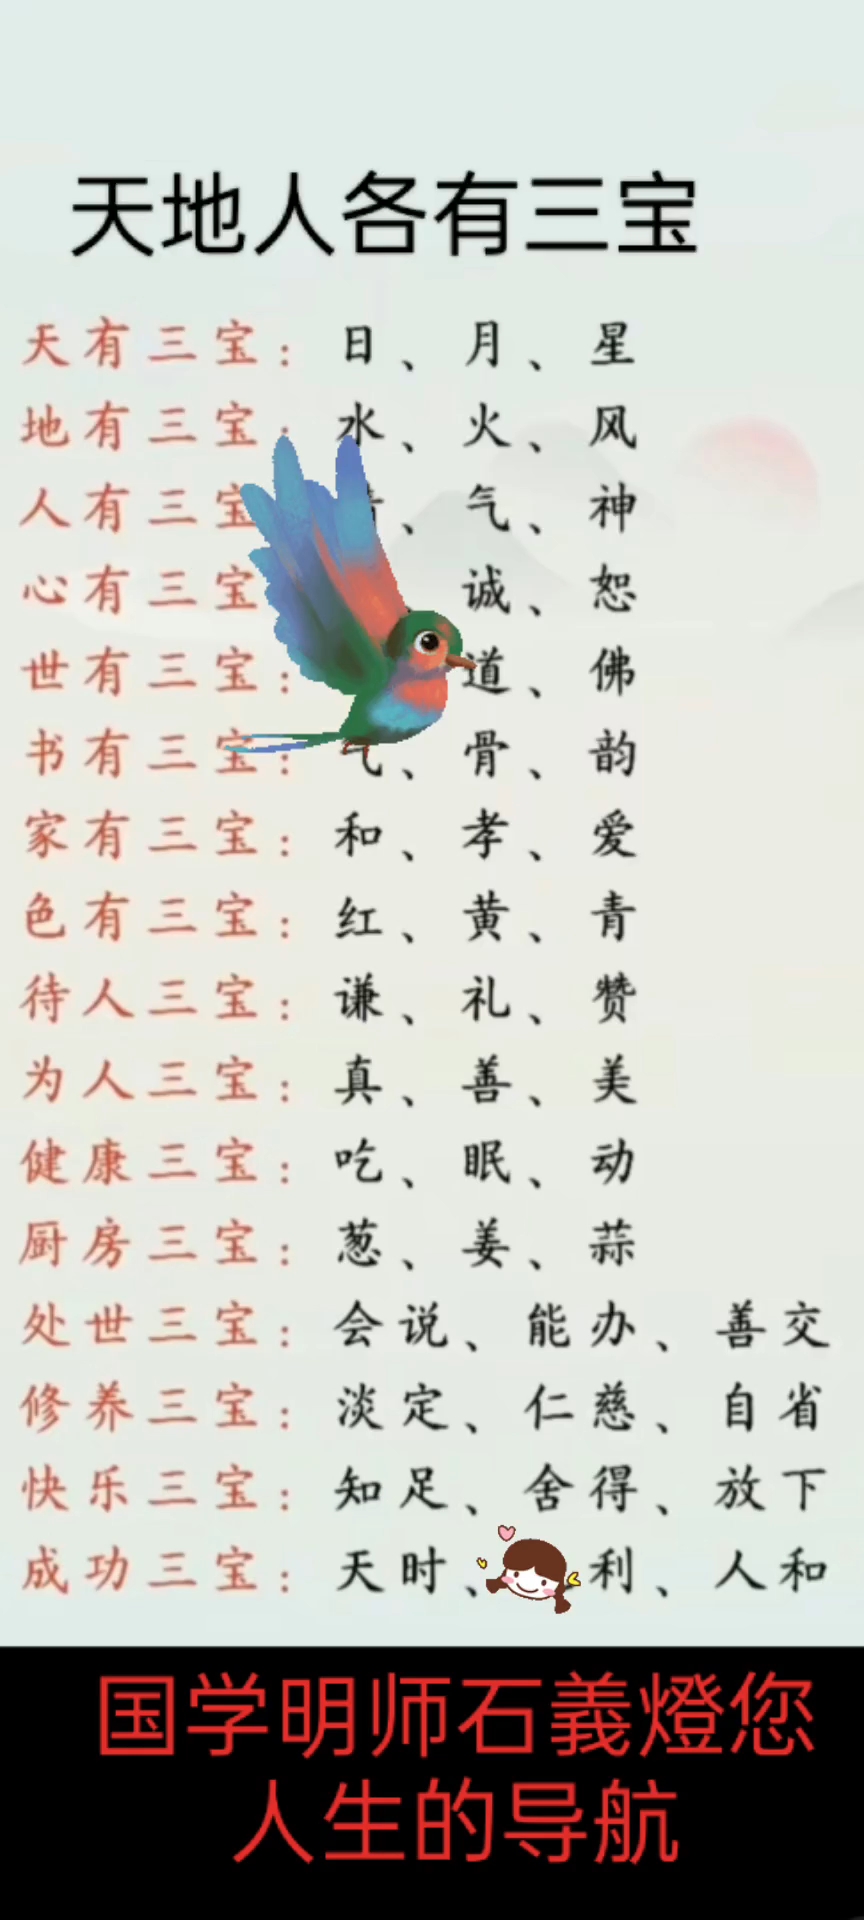 天地人各有三宝
天有三宝：日、月、星
地有三宝：水、火、风
人有三宝 、气、神
心有三宝 诚、恕
世有三宝： 道、佛
书有三宝：气、骨、韵
家有三宝：和、孝、爱
色有三宝：红、黄、青
待人三宝：谦、礼、赞
为人三宝：真、善、美
健康三宝：吃、眠、动
厨房三宝：葱、姜、蒜
处世三宝：会说、能办、善交
修养三宝：淡定、仁慈、自省
快乐三宝：知足、舍得、放下
成功三宝：天时、利、人和
国学明师石義燈您
人生的导航